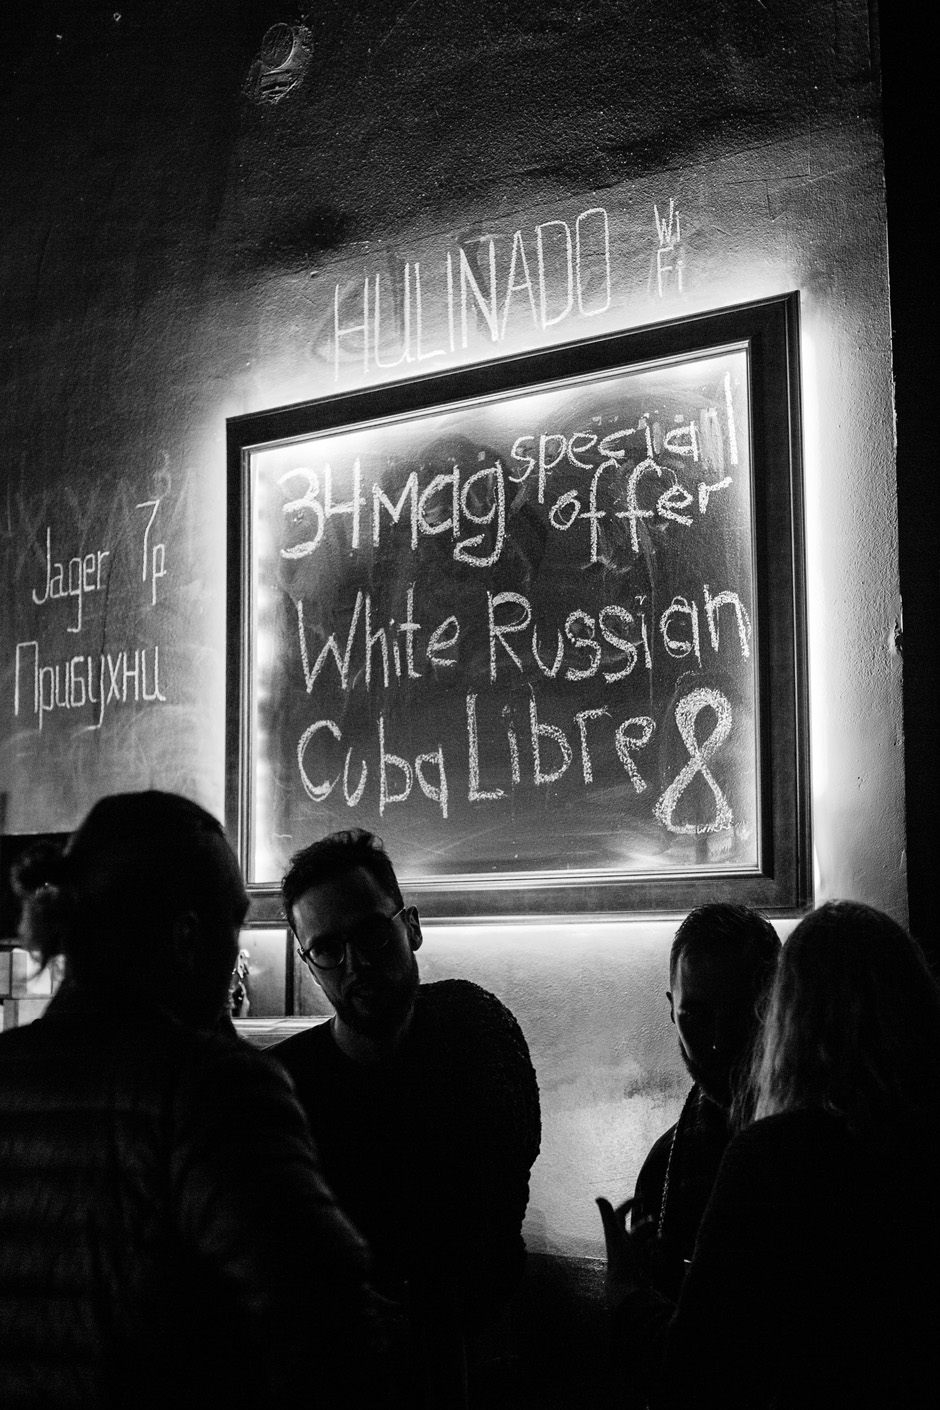 HULINADO
Wi
Fi
34mag special
offer
White Russian
Cuba Libre 8
Jager 7р
Прибухни